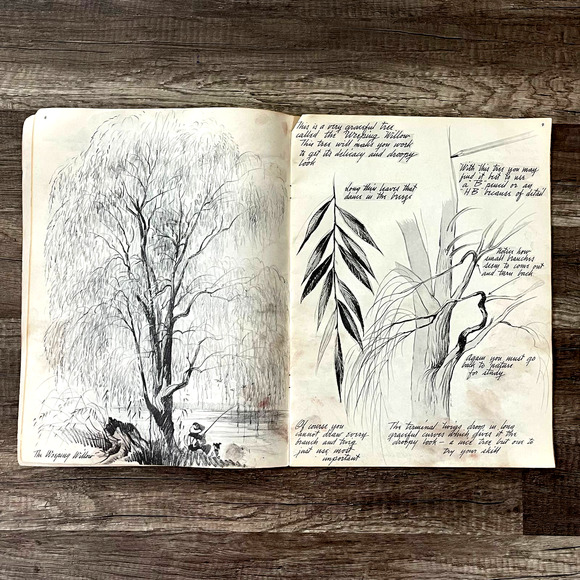 The Weeping Willow
This is a very graceful tree
called the Weeping Willow
This tree will make you work
to get its delicacy and droopy
look
Long thin leaves that
dance in the breeze
With this tree you may
find it best to use
a "B" pencil or an
"HB" because of detail
Notice how
small branches
seem to come out
and turn back
Again you must go
back to nature
for study
Of course you
cannot draw every
branch and twig
just use most
important
The terminal twigs droop in long
graceful curves which gives it the
droopy look – a nice tree but one to
try your skill